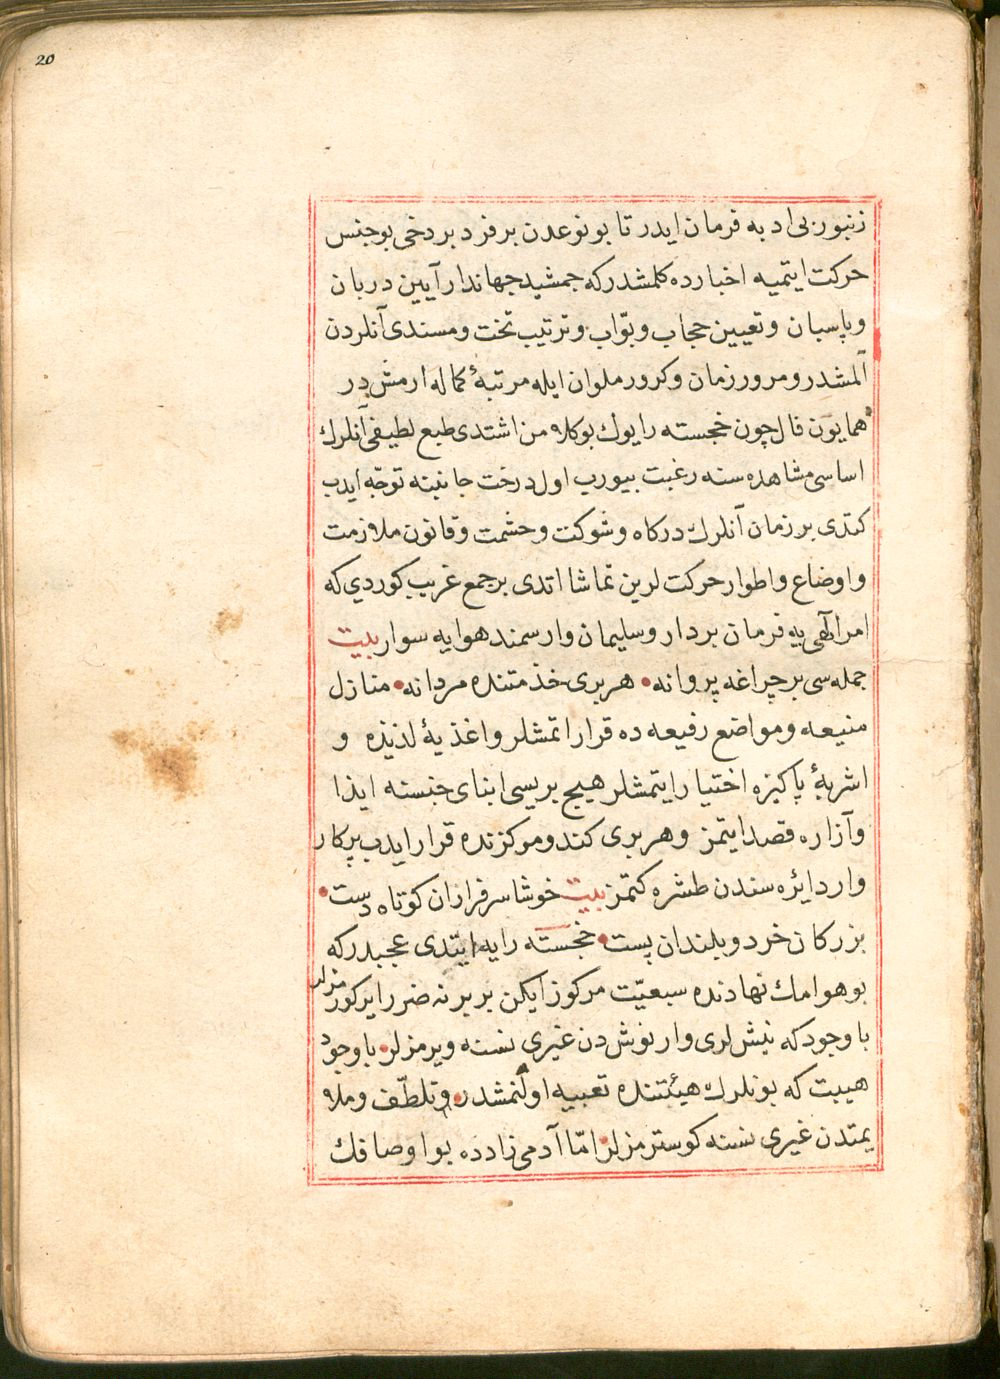 20
زنبور بی ادبه فرمان ایدر تا بو نوعدن بر فرد بر دخی بو جنس
حرکت ایتمیه اخبارده کلمشدر که جمشید جهاندار آیین دربان
و پاسبان و تعیین حجاب و بوّاب و ترتیب تخت و مسندی آنلردن
آلمشدر و مرور زمان و کرور ملوان ایله مرتبۀ کماله ارمش در
همایون فال چون خجسته رایوك بو کلامن اشتدی طبع لطیفی آنلرك
اساسی مشاهده سنه رغبت بیورب اول درخت جانبنه توجّه ایدب
کتدی بر زمان آنلرك درکاه و شوکت و حشمت و قانون ملازمت
و اوضاع و اطوار حرکت لرین تماشا اتدی بر جمع غریب کوردی که
امر الهی یه فرمان بردار و سلیمان وار سمند هوایه سوار بیت
جمله سی بر چراغه پروانه • هر بری خذمتنده مردانه • منازل
منیعه و مواضع رفیعه ده قرار اتمشلر و اغذیۀ لذیذه و
اشربۀ پاکیزه اختیار ایتمشلر هیچ بریسی ابنای جنسنه ایذا
و آزاره قصد ایتمز و هر بری کندو مرکزنده قرار ایدب پرکار
وار دایره سندن طشره کتمز بیت خوشا سرفرازان کوتاه دست •
بزرکان خرد و بلندان پست • خجسته رایه ایتدی عجبدر که
بو هوامك نهادنده سبعیّت مرکوز ایکن بر برنه ضرر ایرکورمزلر
با وجود که نیش لری وار نوش دن غیری نسنه ویرمزلر • با وجود
هیبت که بونلرك هیئتنده تعبیه اولنمشدر • و تلطّف و ملا
یمتدن غیری نسنه کوسترمزلر امّا آدمی زادده بو اوصافك